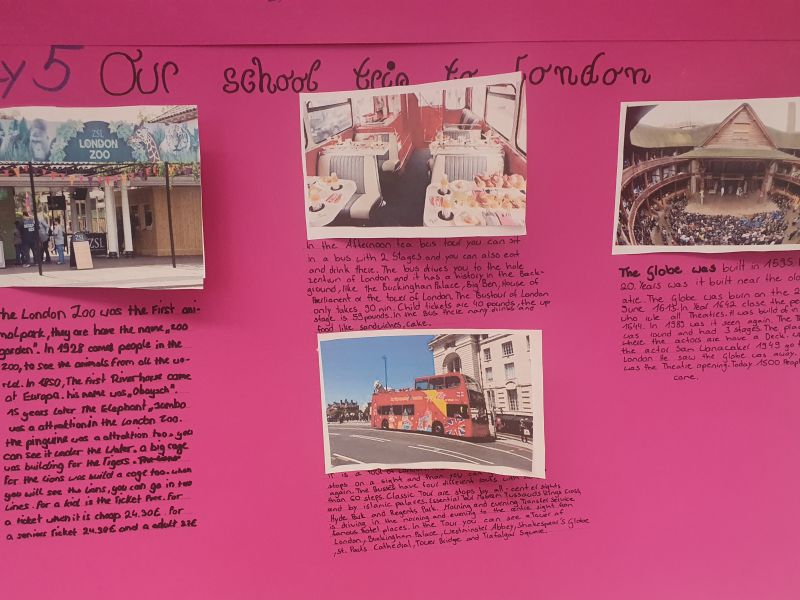 y 5 Our school trip to London
ZSL
LONDON
ZOO
ZSL
the London Zoo was the First ani-
malpark, they are have the name „zoo
garden". In 1928 comes people in the
zoo, to see the animals from all the wo-
rld. In 1850, The first Riverhorse came
at Europa. his name was „Obaysch".
15 years later The Elephant „Jumbo
was a attraktion in the London Zoo.
the pinguine was a attraktion too. you
can see it under the Water. a big cage
was building for the Tigers.
For the Lions was build a cage too. when
you will see the Lions, you can go in two
Lines. For a kid is the Ticket Free. For
a ticket when it is cheap 24.30£. For
a seniors Ticket 24.30£ and a adult 27£
In the Afternoon tea bus tour you can sit
in a bus with 2 Stages and you can also eat
and drink there. The bus drives you to the hole
zentrum of London and it has a history in the Back-
ground, like the Buckingham Palace, Big Ben, House of
Parliament or the tower of London. The Bustour of London
only takes 90 min. Child tickets are 40 pounds, the up
stage is 55 pounds. In the Bus there many drinks and
food like sandwiches, cake.
stops on a sight and than you can
again. The Busses have four different tours with
than 60 steps. Classic Tour are stops by all central sights
and by islamic palaces. Essential Tour Madam Tussauds Kings Cross,
Hyde Park and Regents Park. Morning and evening Transfer Service
is driving in the morning and evening to the sight from
famous Hotel places. In the Tour you can see „Tower of
London, Buckingham Palace, Westminster Abbey, Shakespear's Globe
, St. Pauls Cathedral, Tower Bridge and Trafalgar Square.
The Globe was built in 1595.
20. Years was it built near the old
atre. The Globe was burn on the 2
June 1613. In Year 1642 close the pe
who rule all Theatres. It was build at
1644. In 1989 was it seen again. The T
was round and had 3 stages. The pla
where the actors are have a Deck.
the actor Sam Wanacaker 1949 go
London. He saw the Globe was away.
was the Theatre opening. Today 1500 Peopl
came.